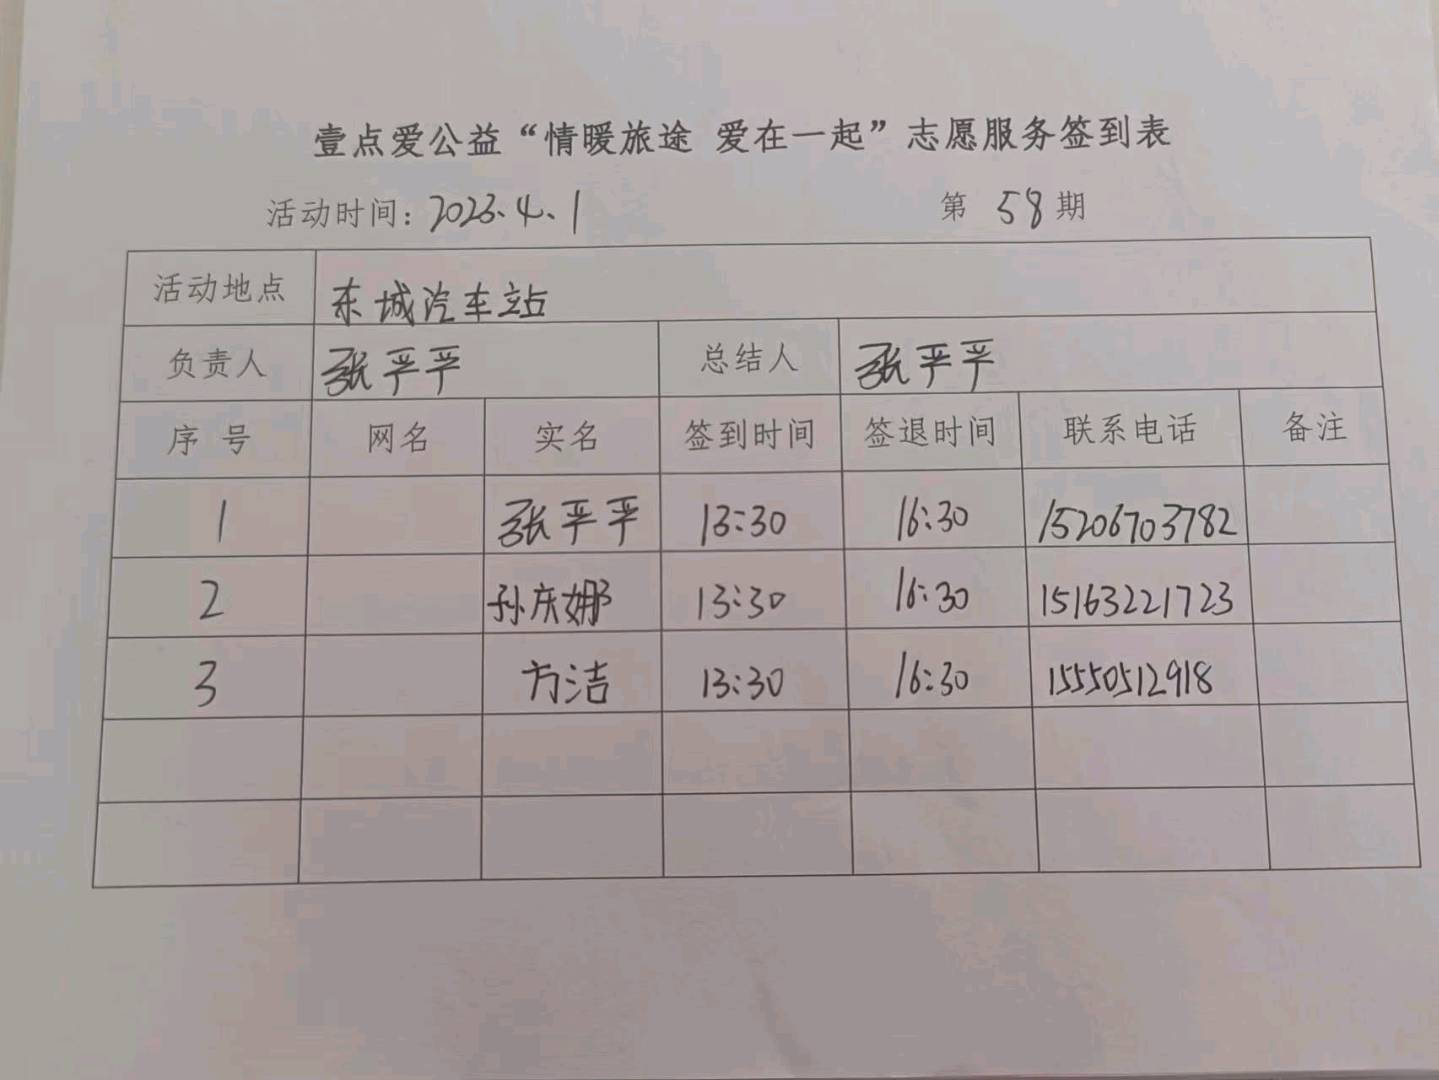 壹点爱公益“情暖旅途 爱在一起”志愿服务签到表
活动时间：2023.4.1 第 58 期
活动地点 东城汽车站
负责人 张平平 总结人 张平平
序号 网名 实名 签到时间 签退时间 联系电话 备注
1 张平平 13:30 16:30 15206703782
2 孙庆娜 13:30 16:30 15163221723
3 方洁 13:30 16:30 15550512918